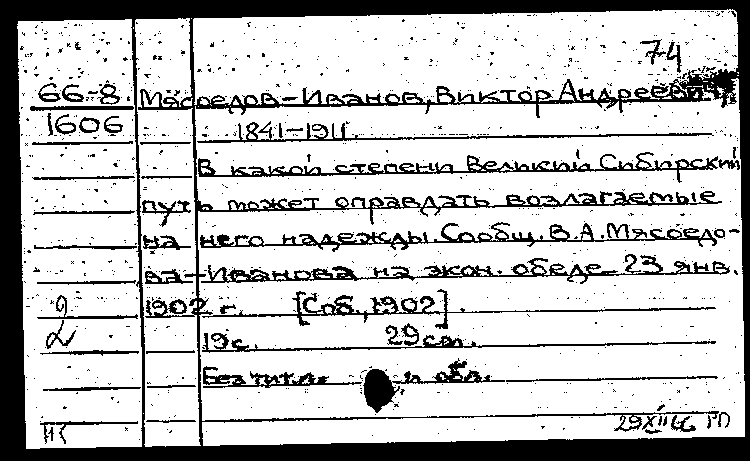 74
66-8. Мясоедов-Иванов, Виктор Андреевич,
1606 1841-1911.
В какой степени Великий Сибирский
путь может оправдать возлагаемые
на него надежды. Сообщ. В.А. Мясоедо-
ва-Иванова на экон. обеде 23 янв.
1902 г. [Спб., 1902].
2
2 19 с. 29 см.
Без тит. л. и обл.
29 XII 66